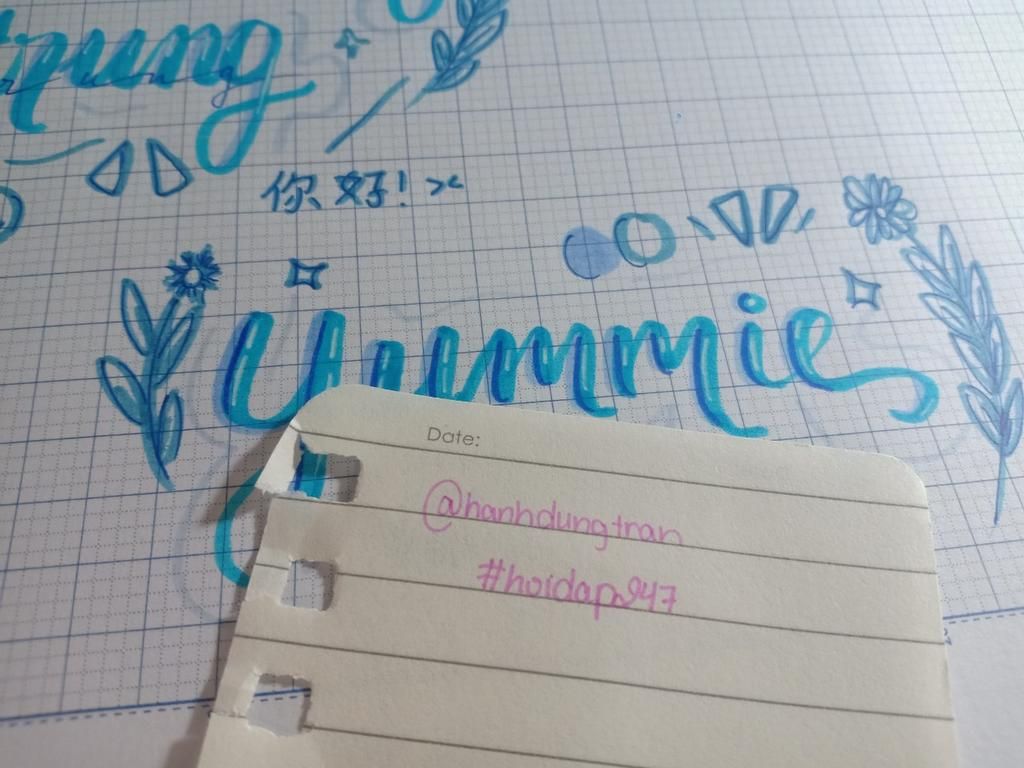 你好! ><
yummie
Date:
@hanhdungtran
#hoidap247